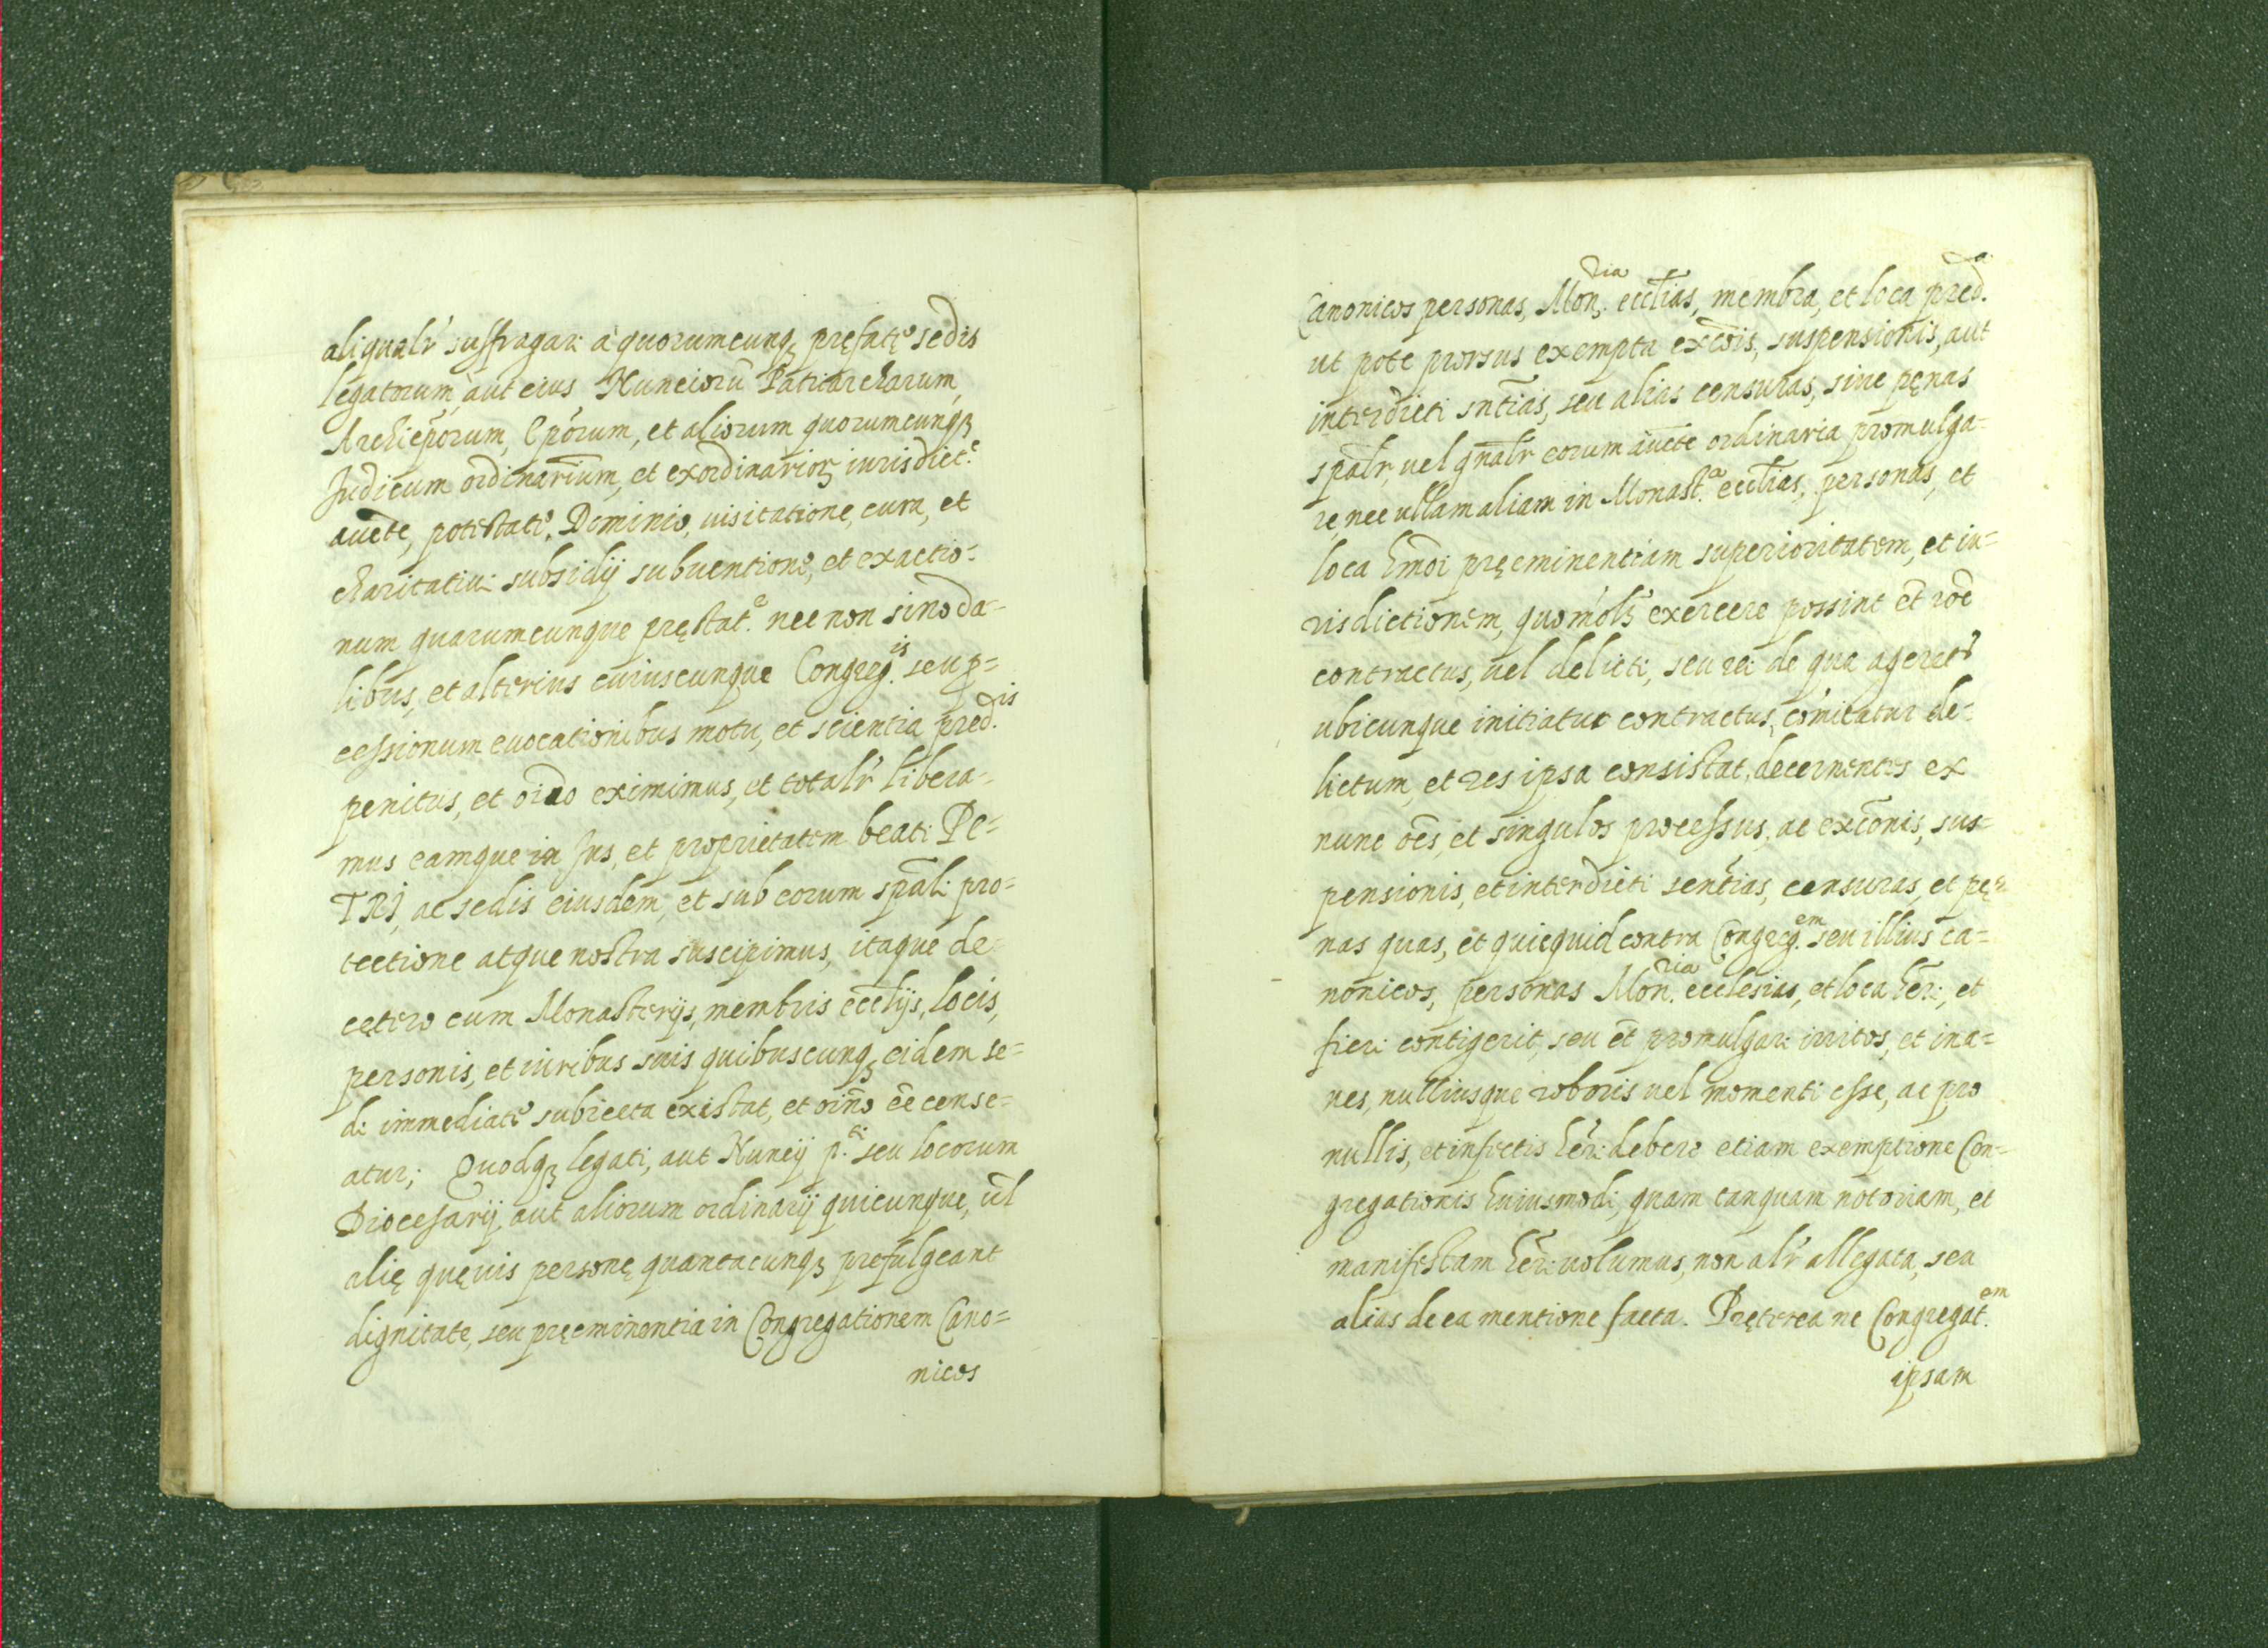 aliqualr̃ suffragari à quorumcunq; prefatę sedis
legatorum, aut eius Nuncioru͂ Patriarcharum,
Archiep̃orum, Ep̃orum, et aliorum quorumcunq;
Judicum ordinarium, et exordinarioꝝ iurisdict.e
aucte, potestate, Dominio, uisitatione, cura, et
charitatiui subsidij subuentione, et exactio=
num quarumcunque pręstat.e nec non sinoda=
libus, et alterius cuiuscunque Congreg.is seu p=
cessionum euocationibus motu, et scientia pred.is
penitus, et oĩno eximimus, et totalr̃ libera=
mus eamque in Jus, et proprietatem beati Pe=
TRI, ac sedis eiusdem, et sub eorum spãli pro=
tectione atque nostra suscipimus, itaque de
cętero cum Monasterijs, membris ecclijs, locis,
personis, et iuribus suis quibuscunq; eidem se=
di immediate subiecta existat, et oĩno ẽe cense=
atur; Quodq; legati, aut Nuncij p.ti seu locorum
Diocesarij, aut aliorum ordinarij quicunque, ũl
alię quęuis personę quantacunq; prefulgeant
dignitate, seu pręeminentia in Congregationem Cano=
nicos
Canonicos personas, Mon.ria ecclias, membra, et loca pred.a
ut pote prorsus exempta excõis, suspensionis, aut
interdicti sñtias, seu alias censuras, siue pęnas
spãlr, uel gñalr eorum aucte ordinaria promulga=
re, nec ullam aliam in Monast.a ecclias, personas, et
loca hm̃oi pręeminentiam superioritatem, et iu=
risdictionem, quomolz exercere possint et̃ rõe
contractus, uel delicti, seu rei de qua ageret̃
ubicunque initiatur contractus, cõmitatur de=
lictum, et res ipsa consistat, decernentes ex
nunc oẽs, et singulos processus, ac excõnis, sus=
pensionis, et interdicti sentias, censuras, et pę=
nas quas, et quicquid contra Congreg.em seu illius ca=
nonicos, personas Mon.ria ecclesias, et loca hẽri, et
fieri contigerit, seu et̃ promulgari irritos, et ina=
nes, nulliusque roboris uel momenti esse, ac pro
nullis, et infectis hẽri debere etiam exemptione Con=
gregationis huiusmodi, quam tanquam notoriam, et
manifestam hẽri uolumus, non alr̃ allegata, seu
alias de ea mentione facta. Pręterea ne Congregat.em
ipsam